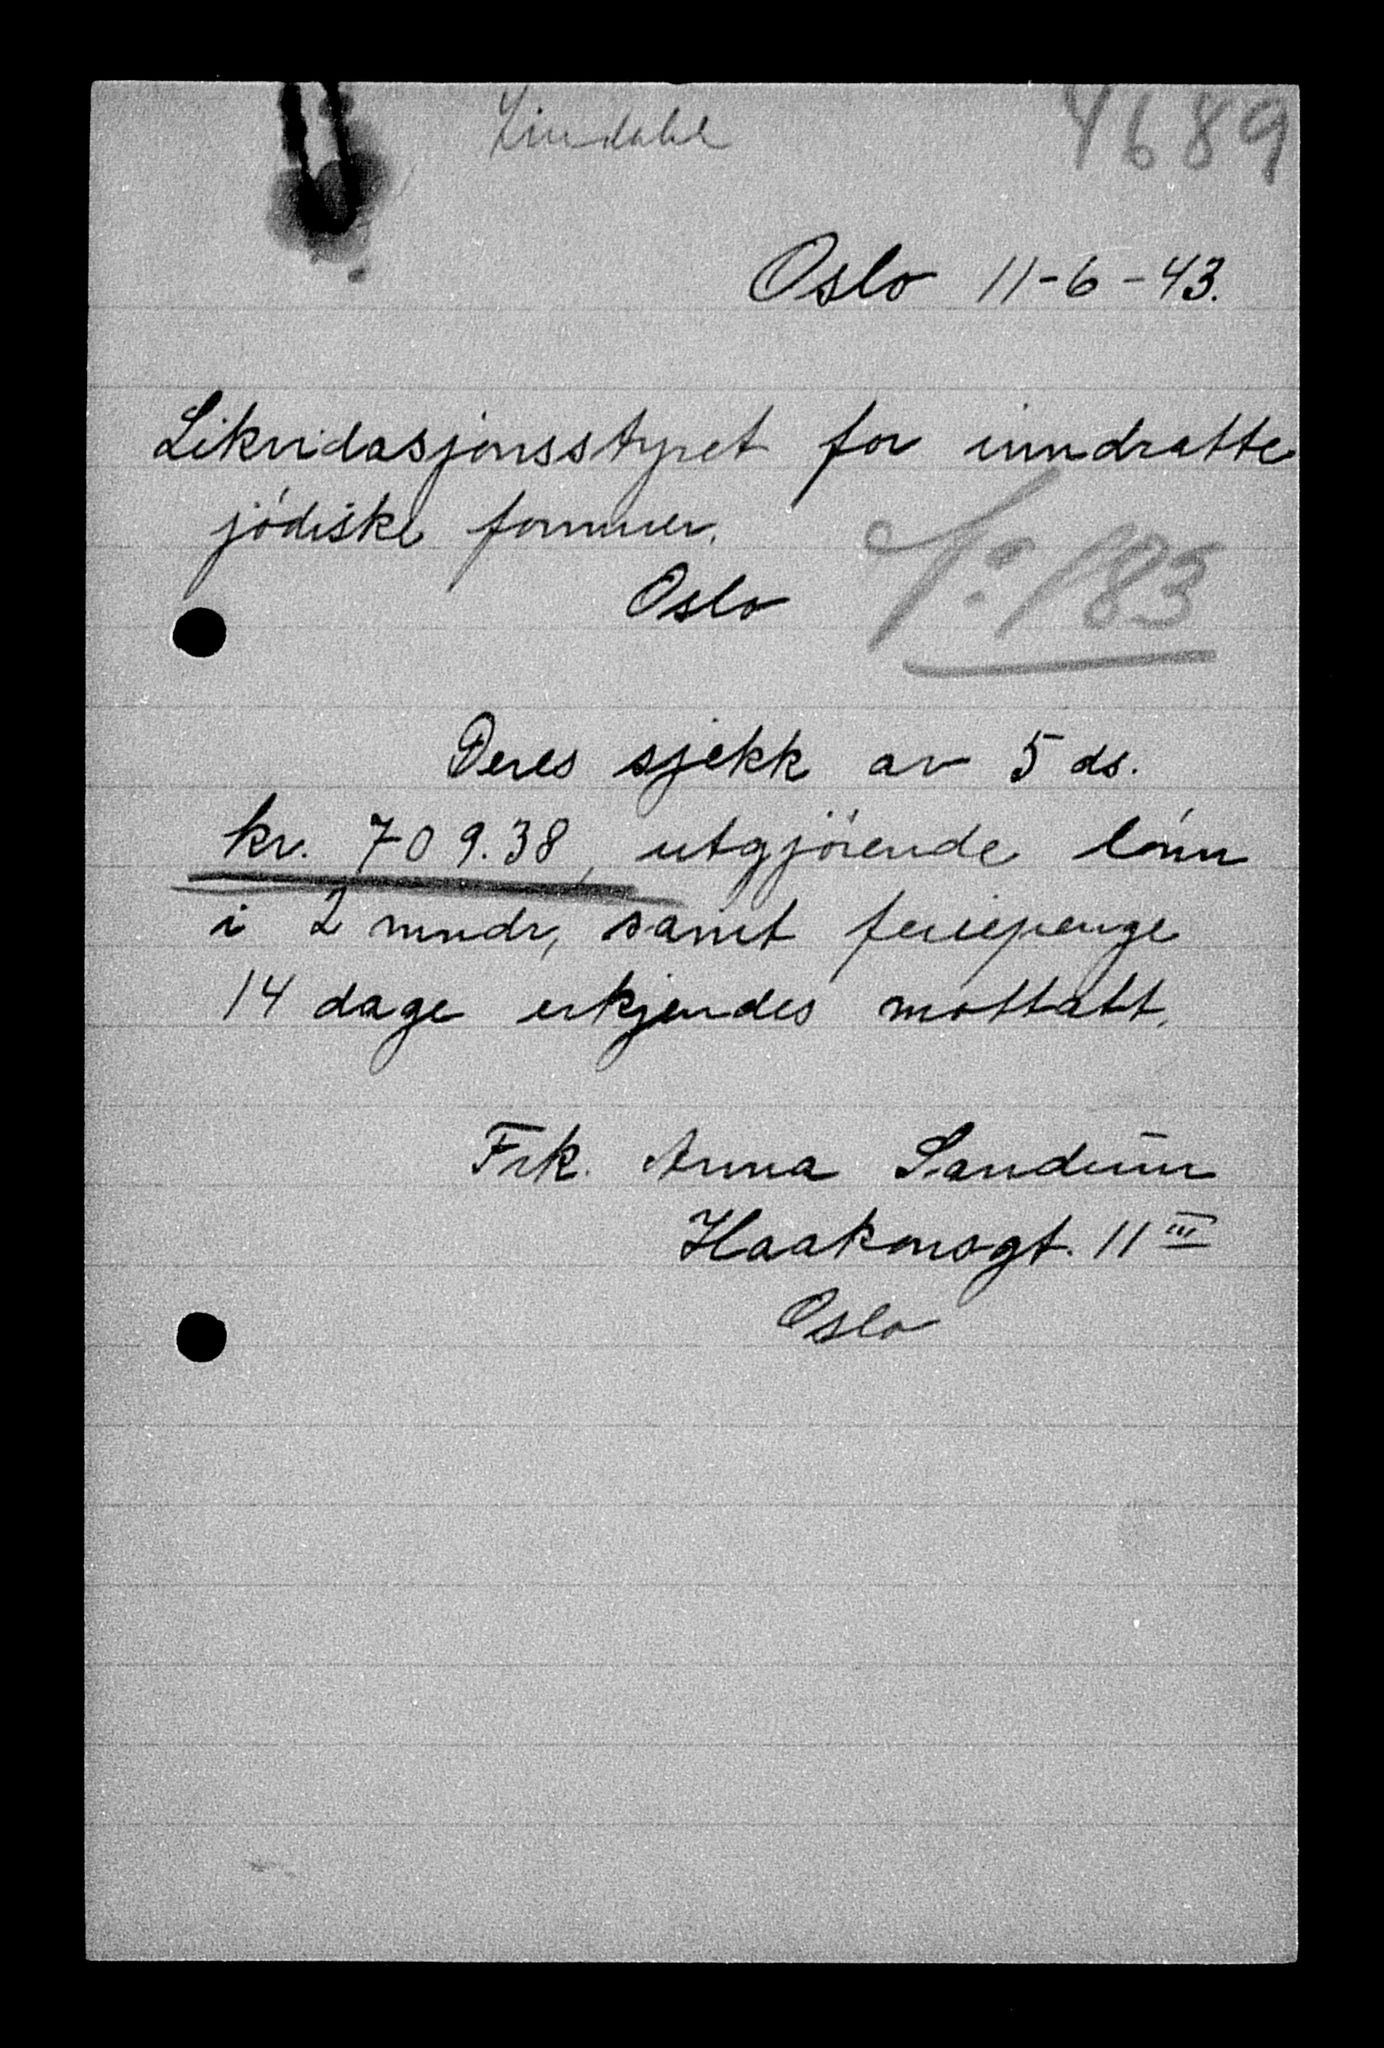 Lindahl
4689
Oslo 11-6-43.
Likvidasjonsstyret for inndratte
jödiske formuer.
Oslo
No 183
Deres sjekk av 5 ds.
kr. 709.38, utgjörende lönn
i 2 mndr, samt feriepenge
14 dage erkjendes mottatt.
Frk. Anna
Haakonsgt. 11 III
Oslo